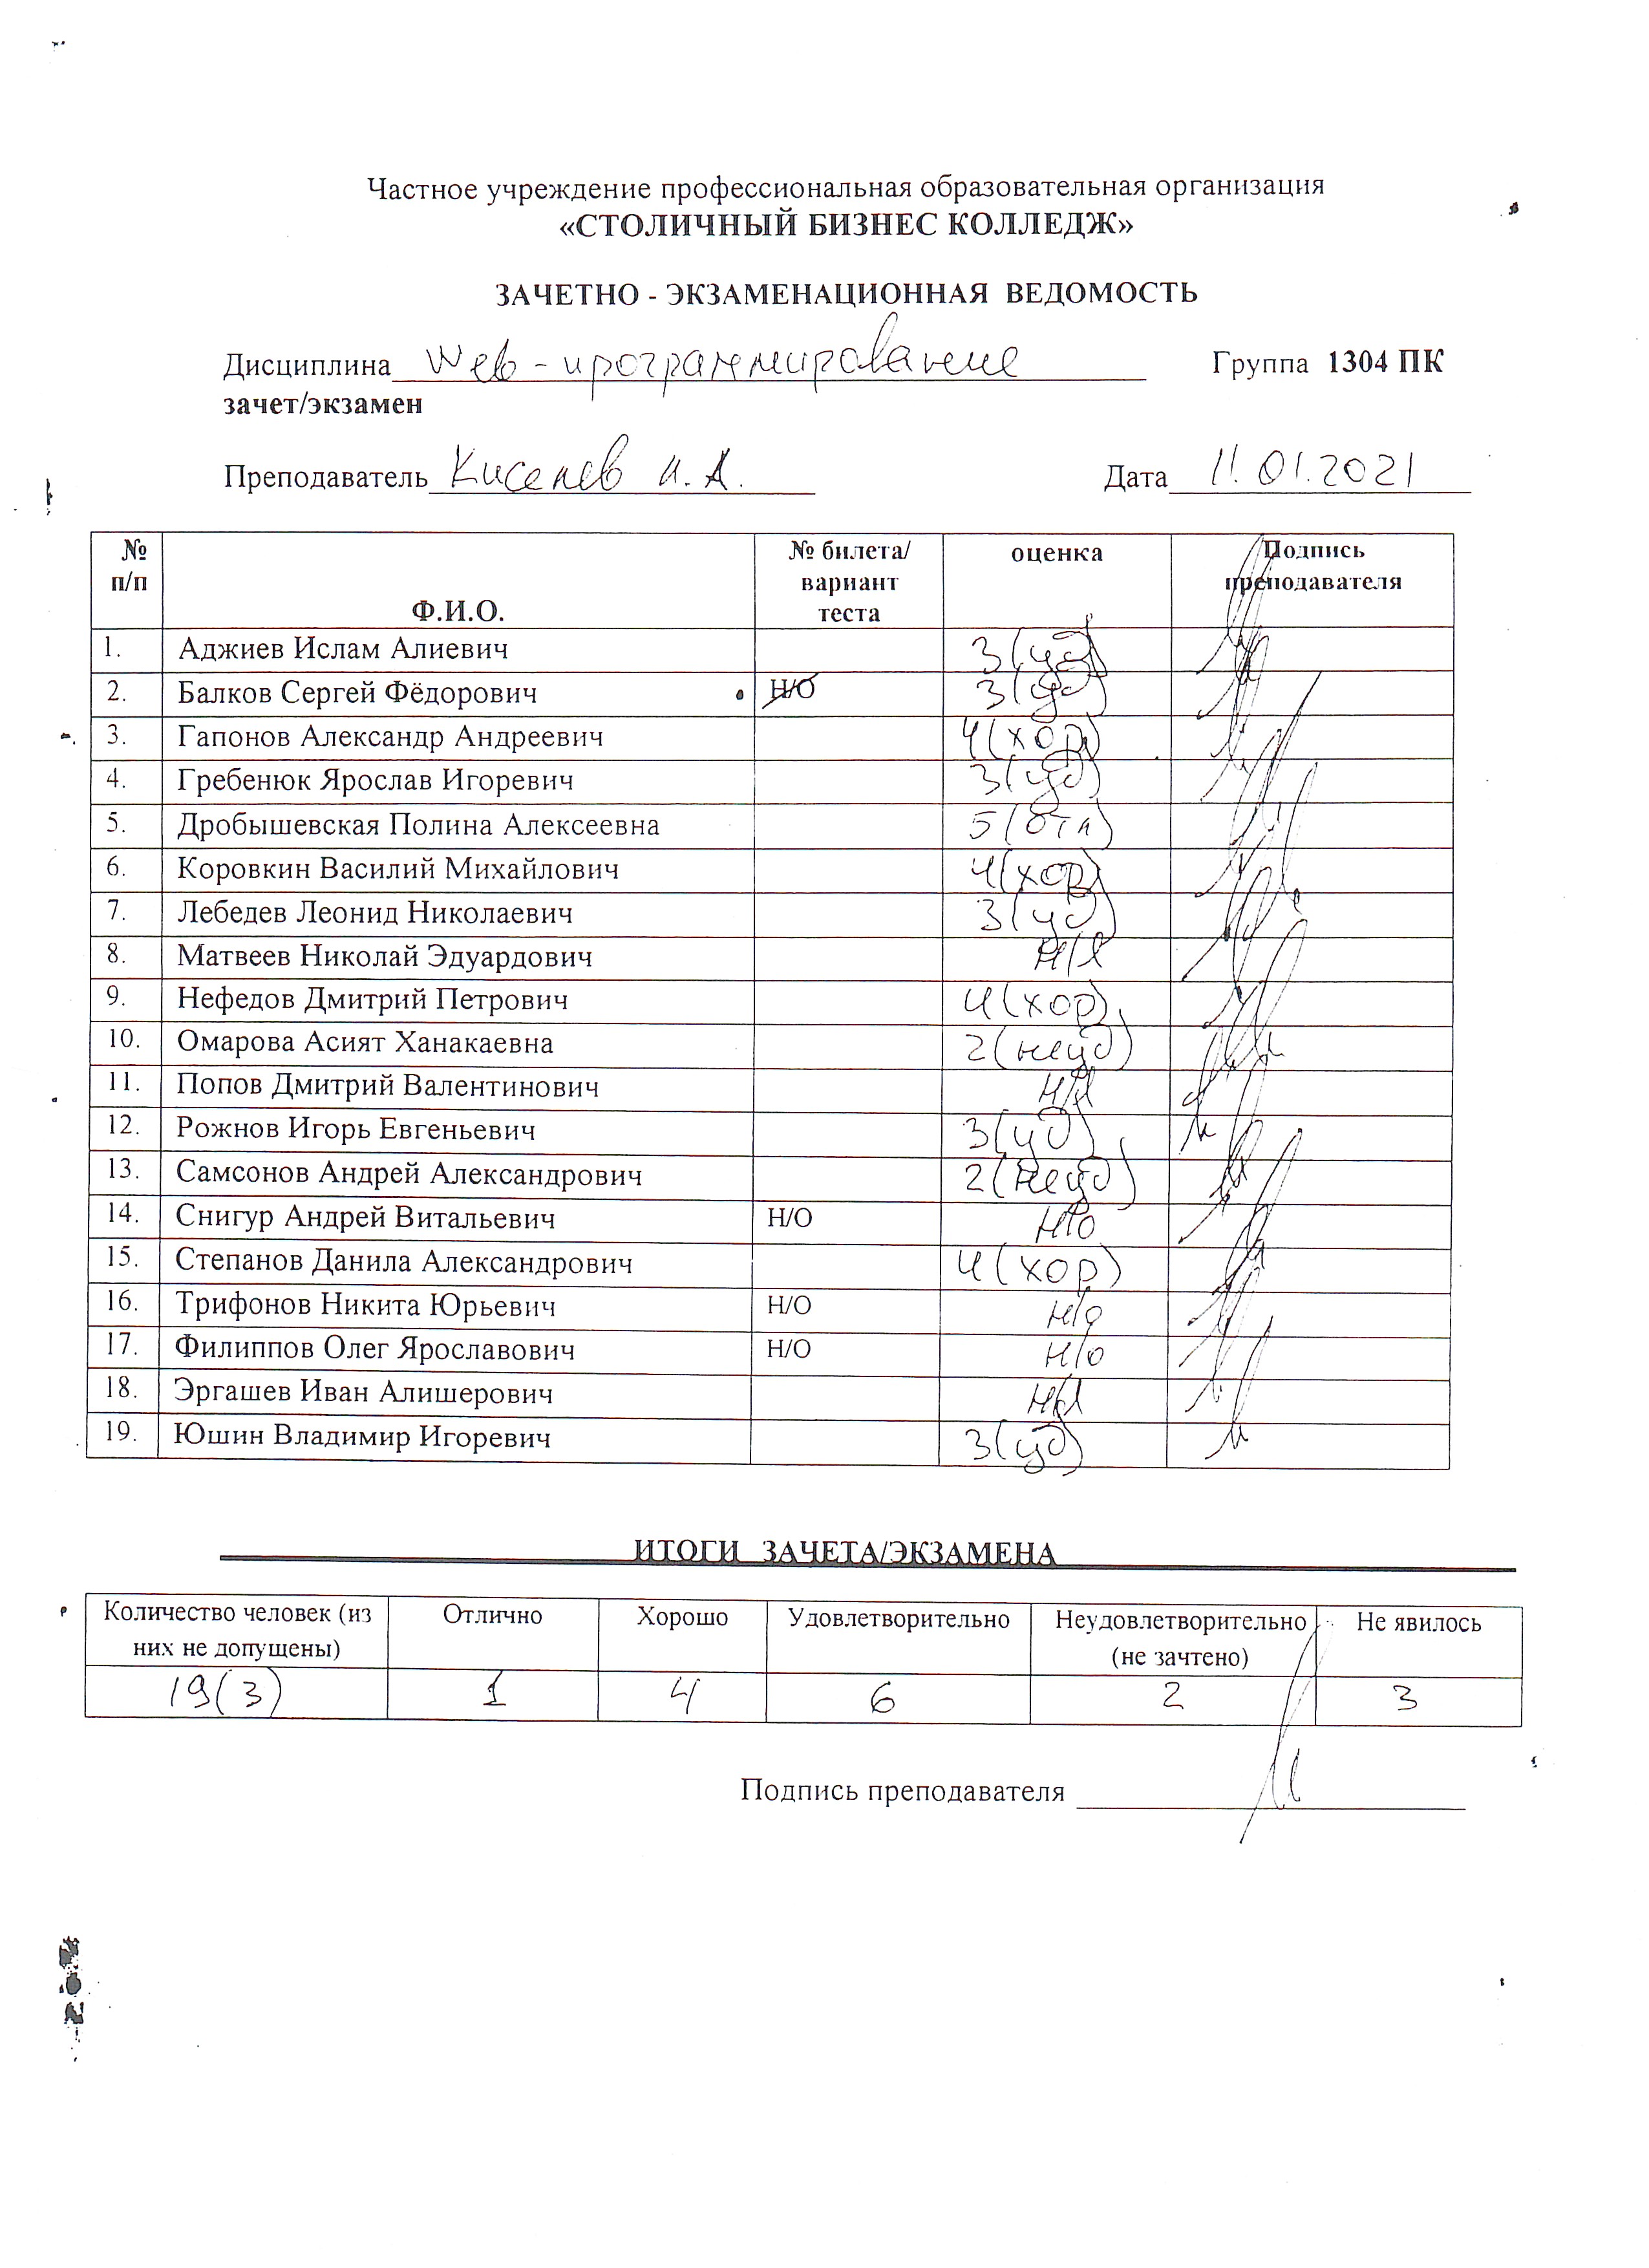 Частное учреждение профессиональная образовательная организация
«СТОЛИЧНЫЙ БИЗНЕС КОЛЛЕДЖ»
ЗАЧЕТНО - ЭКЗАМЕНАЦИОННАЯ ВЕДОМОСТЬ
Дисциплина Web-программирование Группа 1304 ПК
зачет/экзамен
Преподаватель Киселев И.А. Дата 11.01.2021
№ п/п Ф.И.О. № билета/ вариант теста оценка Подпись преподавателя
1. Аджиев Ислам Алиевич 3(уд)
2. Балков Сергей Фёдорович Н/О 3(уд)
3. Гапонов Александр Андреевич 4(хор)
4. Гребенюк Ярослав Игоревич 3(уд)
5. Дробышевская Полина Алексеевна 5(отл)
6. Коровкин Василий Михайлович 4(хор)
7. Лебедев Леонид Николаевич 3(уд)
8. Матвеев Николай Эдуардович Н/Я
9. Нефедов Дмитрий Петрович 4(хор)
10. Омарова Асият Ханакаевна 2(неуд)
11. Попов Дмитрий Валентинович Н/Я
12. Рожнов Игорь Евгеньевич 3(уд)
13. Самсонов Андрей Александрович 2(неуд)
14. Снигур Андрей Витальевич Н/О Н/О
15. Степанов Данила Александрович 4(хор)
16. Трифонов Никита Юрьевич Н/О Н/О
17. Филиппов Олег Ярославович Н/О Н/О
18. Эргашев Иван Алишерович Н/Я
19. Юшин Владимир Игоревич 3(уд)
ИТОГИ ЗАЧЕТА/ЭКЗАМЕНА
Количество человек (из них не допущены) Отлично Хорошо Удовлетворительно Неудовлетворительно (не зачтено) Не явилось
19(3) 1 4 6 2 3
Подпись преподавателя